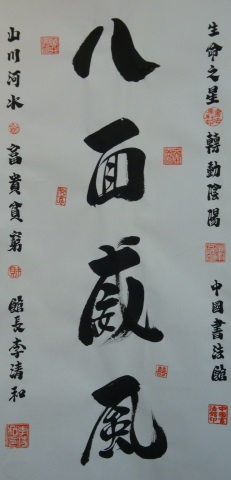 生命之星 轉動陰陽 中國書法館
八面威風
山川河水 富貴貧窮 館長李清和